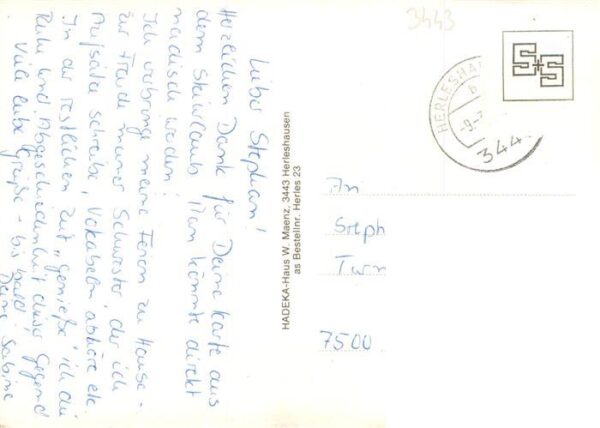 Lieber Stephan!
Herzlichen Dank für Deine Karte aus
dem Skiurlaub. Man könnte direkt
neidisch werden!
Ich verbringe meine Ferien zu Hause -
zur Freude meiner Schwester, der ich
Aufsätze schreibe, Vokabeln abhöre etc.
In der restlichen Zeit „genieße" ich die
Ruhe und Abgeschiedenheit dieser Gegend
Viele liebe Grüße - bis bald!
Deine Sabine
HADEKA-Haus W. Maenz, 3443 Herleshausen
as Bestellnr. Herles 23
3443
S+S
HERLESHA
b
-9.-7
344
An
Steph
Turn
7500